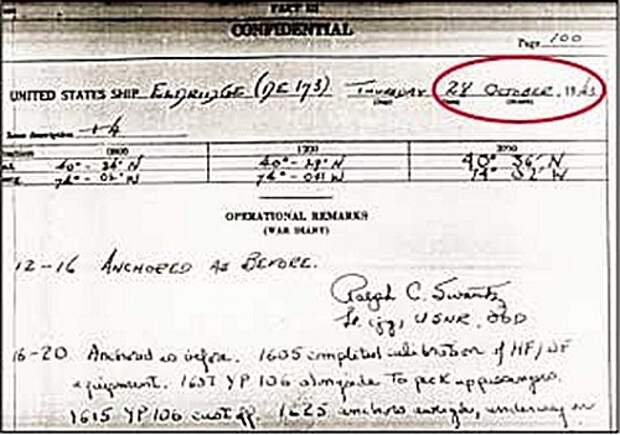 PART III
CONFIDENTIAL
Page 100
UNITED STATES SHIP ELDRIDGE (DE 173) THURSDAY 28 OCTOBER, 1943
Zone description +4
0800 1200 2000
40°-36' N 40°- N 40° 36' N
74°-02' W 74°- W 74° 02' W
OPERATIONAL REMARKS
(WAR DIARY)
12-16 ANCHORED AS BEFORE.
Ralph C. Swantz
Lt. (jg), USNR, OOD
16-20 Anchored as before. 1605 completed calibration of HF/DF
equipment. 1607 YP 106 alongside to pick up passengers.
1615 YP 106 cast off. 1625 anchors aweigh, underway in